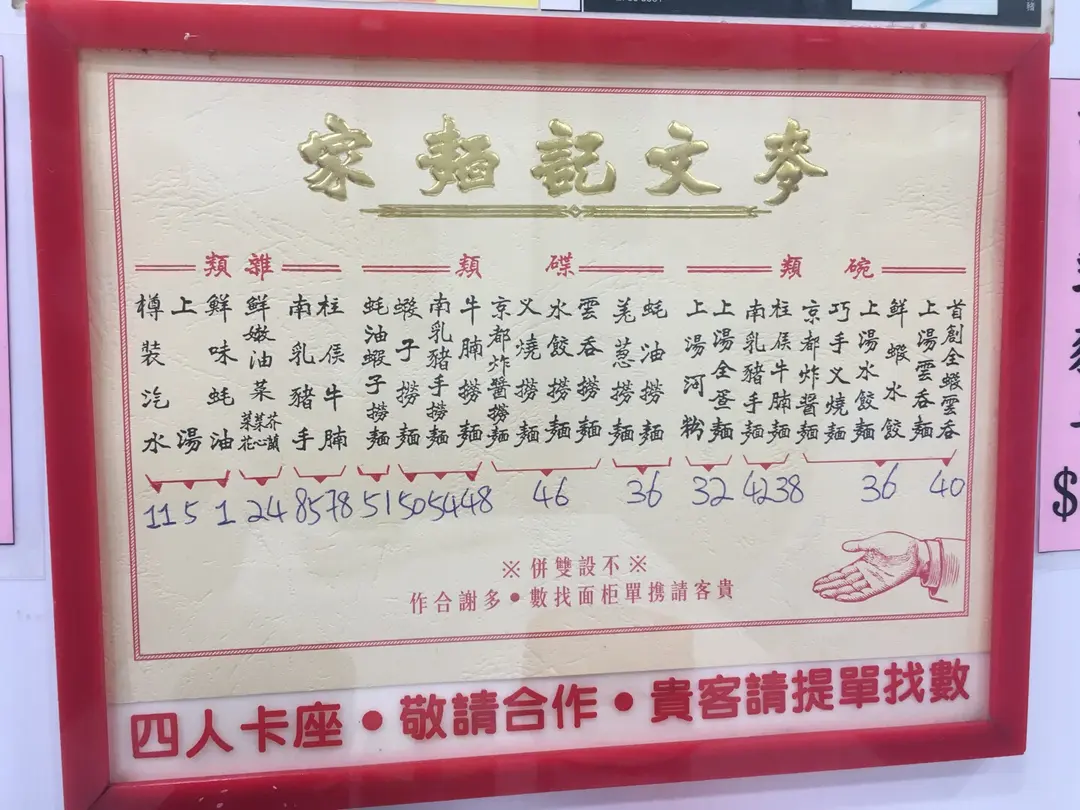 麥文記麵家
碗類
首創全蝦雲吞
上湯雲吞麵
鮮蝦水餃
上湯水餃麵
巧手叉燒麵
京都炸醬麵
柱侯牛腩麵
南乳豬手麵
上湯全蛋麵
上湯河粉
40
36
38
42
32
碟類
蚝油撈麵
羌葱撈麵
雲吞撈麵
水餃撈麵
叉燒撈麵
京都炸醬撈麵
牛腩撈麵
南乳豬手撈麵
蝦子撈麵
蚝油蝦子撈麵
36
46
48
54
50
51
雜類
柱侯牛腩
南乳豬手
鮮嫩油菜 芥蘭 菜心 菜花
鮮味蚝油
上湯
樽裝汽水
78
85
24
1
5
11
※不設雙併※
貴客請携單柜面找數•多謝合作
四人卡座•敬請合作•貴客請提單找數
$